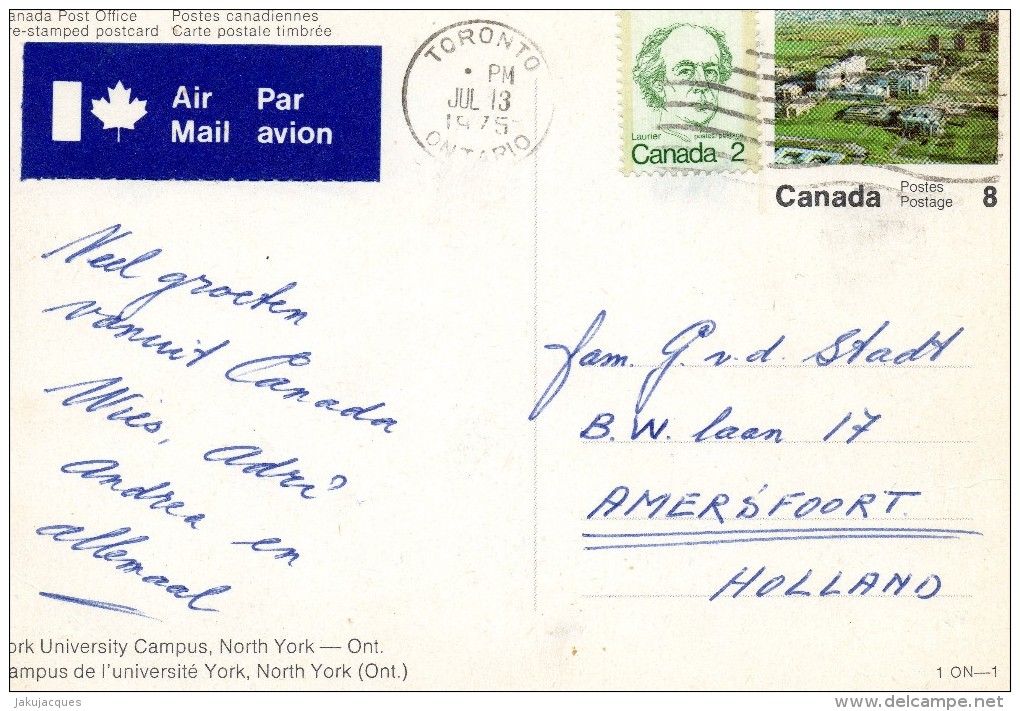 anada Post Office Postes canadiennes
re-stamped postcard Carte postale timbrée
Air Par
Mail avion
TORONTO
PM
JUL 13
1975
ONTARIO
Laurier postes/postage
Canada 2
Canada Postes Postage 8
Veel groeten
vanuit Canada
Wies, Adri
Andrea en
allemaal
fam. G. v. d. Stadt
B.W. laan 17
AMERSFOORT.
HOLLAND
ork University Campus, North York — Ont.
ampus de l'université York, North York (Ont.)
1 ON—1
jakujacques
www.delcampe.net